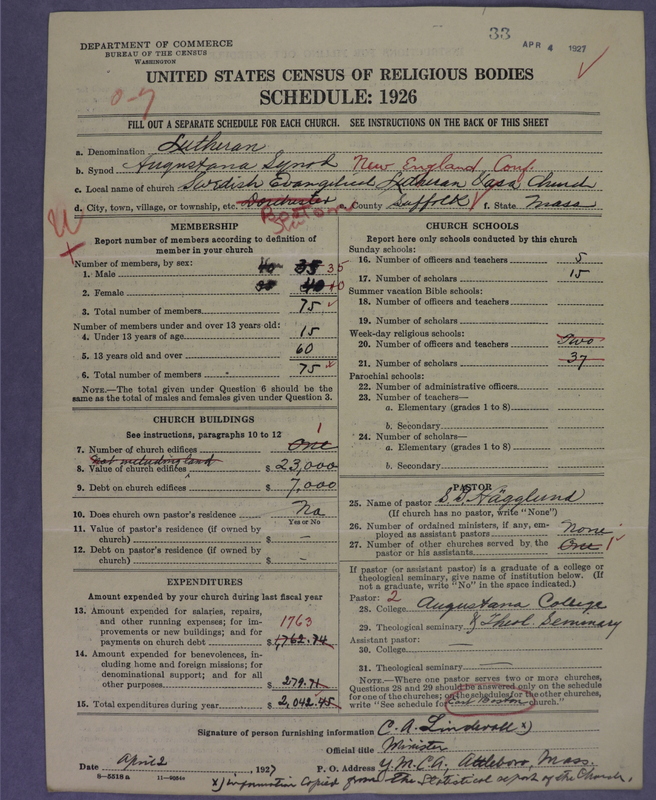 33
APR 4 1927
DEPARTMENT OF COMMERCE
BUREAU OF THE CENSUS
WASHINGTON
UNITED STATES CENSUS OF RELIGIOUS BODIES
SCHEDULE: 1926
0-7
FILL OUT A SEPARATE SCHEDULE FOR EACH CHURCH. SEE INSTRUCTIONS ON THE BACK OF THIS SHEET
a. Denomination Lutheran
b. Synod Augustana Synod New England Conf.
c. Local name of church Swedish Evangelical Lutheran Vasa Church
d. City, town, village, or township, etc. Dorchester Boston e. County Suffolk f. State Mass
MEMBERSHIP
Report number of members according to definition of member in your church
Number of members, by sex:
1. Male 35 35
2. Female 40 40
3. Total number of members 75
Number of members under and over 13 years old:
4. Under 13 years of age 15
5. 13 years old and over 60
6. Total number of members 75
NOTE.—The total given under Question 6 should be the
same as the total of males and females given under Question 3.
CHURCH BUILDINGS
See instructions, paragraphs 10 to 12
7. Number of church edifices One 1
Not including land
8. Value of church edifices $ 23,000
9. Debt on church edifices $ 7,000
10. Does church own pastor's residence? No
Yes or No
11. Value of pastor's residence (if owned by
church) $ —
12. Debt on pastor's residence (if owned by
church) $ —
EXPENDITURES
Amount expended by your church during last fiscal year
13. Amount expended for salaries, repairs,
and other running expenses; for im-
provements or new buildings; and for
payments on church debt $ 1,762.74 1763
14. Amount expended for benevolences, in-
cluding home and foreign missions; for
denominational support; and for all
other purposes $ 279.71
15. Total expenditures during year $ 2,042.45
CHURCH SCHOOLS
Report here only schools conducted by this church
Sunday schools:
16. Number of officers and teachers 5
17. Number of scholars 15
Summer vacation Bible schools:
18. Number of officers and teachers
19. Number of scholars
Week-day religious schools:
20. Number of officers and teachers Two
21. Number of scholars 37
Parochial schools:
22. Number of administrative officers
23. Number of teachers—
a. Elementary (grades 1 to 8)
b. Secondary
24. Number of scholars—
a. Elementary (grades 1 to 8)
b. Secondary
PASTOR
25. Name of pastor Hägglund
(If church has no pastor, write "None")
26. Number of ordained ministers, if any, em-
ployed as assistant pastors None
27. Number of other churches served by the
pastor or his assistants One 1
If pastor (or assistant pastor) is a graduate of a college or
theological seminary, give name of institution below. (If
not a graduate, write "No" in the space indicated.)
Pastor: 2
28. College Augustana College
29. Theological seminary & Theol. Seminary
Assistant pastor:
30. College —
31. Theological seminary —
NOTE.—Where one pastor serves two or more churches,
Questions 28 and 29 should be answered only on the schedule
for one of the churches; on the schedules for the other churches,
write "See schedule for East Boston church."
Signature of person furnishing information C. A. Lindevall x)
Official title Minister
Date April 2, 1927 P. O. Address Y.M.C.A., Attleboro, Mass.
8—5518a 11—9084
x) information copied from the Statistical report of the Church.